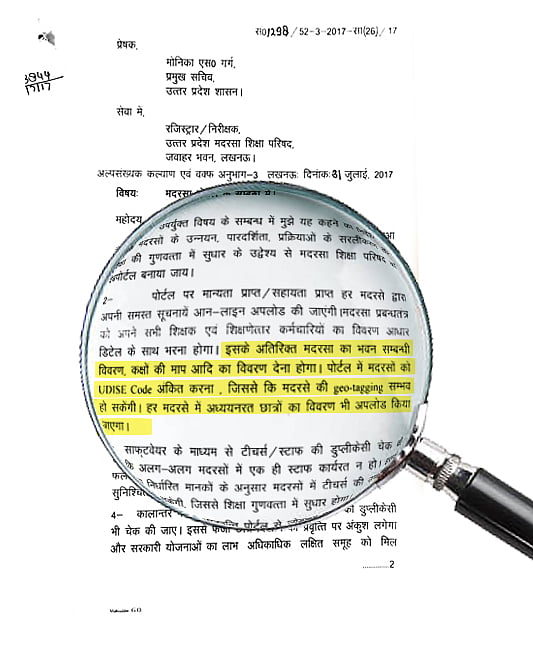 सं01298/52-3-2017-सा(26)/17
3944
17/7/17
प्रेषक,
मोनिका एस0 गर्ग,
प्रमुख सचिव,
उत्तर प्रदेश शासन।
सेवा में,
रजिस्ट्रार/निरीक्षक,
उत्तर प्रदेश मदरसा शिक्षा परिषद,
जवाहर भवन, लखनऊ।
अल्पसंख्यक कल्याण एवं वक्फ अनुभाग-3 लखनऊः दिनांकः31 जुलाई, 2017
विषयः मदरसा के सम्बन्ध में।
महोदय,
उपर्युक्त विषय के सम्बन्ध में मुझे यह कहने का
मदरसों के उन्नयन, पारदर्शिता, प्रक्रियाओं के सरलीकरण
की गुणवत्ता में सुधार के उद्देश्य से मदरसा शिक्षा परिषद
पोर्टल बनाया जाय।
2- पोर्टल पर मान्यता प्राप्त/सहायता प्राप्त हर मदरसे द्वारा
अपनी समस्त सूचनायें आन-लाइन अपलोड की जाएंगी।मदरसा प्रबन्धतंत्र
को अपने सभी शिक्षक एवं शिक्षणेत्तर कर्मचारियों का विवरण आधार
डिटेल के साथ भरना होगा। इसके अतिरिक्त मदरसा का भवन सम्बन्धी
विवरण, कक्षों की माप आदि का विवरण देना होगा। पोर्टल में मदरसों को
UDISE Code अंकित करना , जिससे कि मदरसे की geo-tagging सम्भव
हो सकेगी। हर मदरसे में अध्ययनरत छात्रों का विवरण भी अपलोड किया
जाएगा।
साफ्टवेयर के माध्यम से टीचर्स/स्टाफ की डुप्लीकेसी चेक
कि अलग-अलग मदरसों में एक ही स्टाफ कार्यरत न हो।
निर्धारित मानकों के अनुसार मदरसों में टीचर्स की
जिससे शिक्षा गुणवत्ता में सुधार होगा
4- कालान्तर की डुप्लीकेसी
भी चेक की जाए। इससे प्रवृत्ति पर अंकुश लगेगा
और सरकारी योजनाओं का लाभ अधिकाधिक लक्षित समूह को मिल
............2
GO